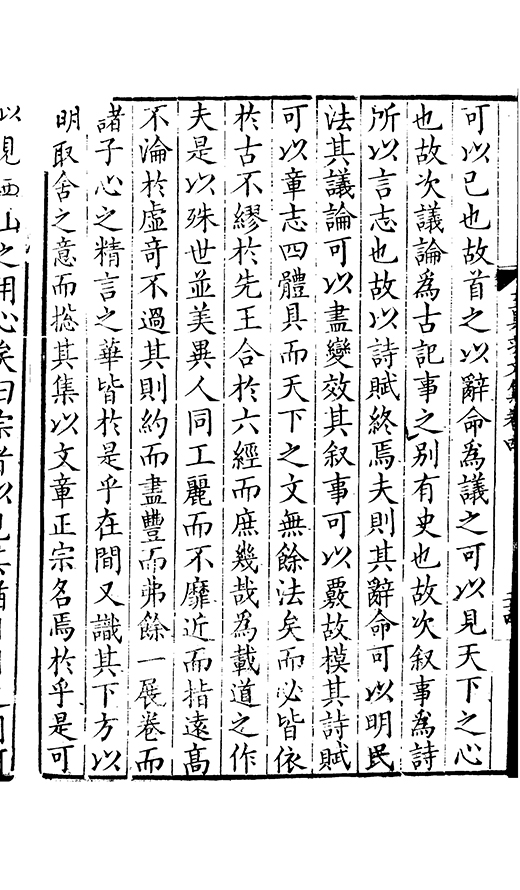 可以已也故首之以辭命為議之可以見天下之心
也故次議論為古記事之别有史也故次叙事為詩
所以言志也故以詩賦終焉夫則其辭命可以明民
法其議論可以盡變效其叙事可以覈故模其詩賦
可以章志四體具而天下之文無餘法矣而必皆依
於古不繆於先王合於六經而庶幾哉為載道之作
夫是以殊世並美異人同工麗而不靡近而指遠高
不淪於虛竒不過其則約而盡豐而弗餘一展卷而
諸子心之精言之華皆於是乎在間又識其下方以
明取舍之意而揔其集以文章正宗名焉於乎是可
以見西山之用心矣曰宗者以見其